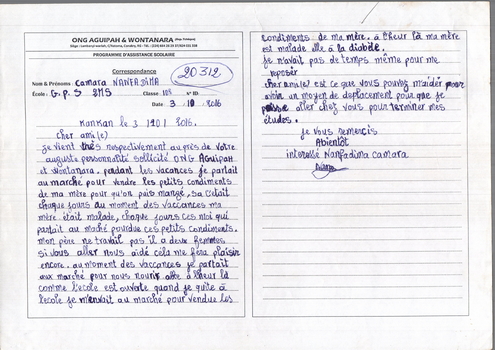 ONG AGUIPAH & WONTANARA
PROGRAMME D'ASSISTANCE SCOLAIRE
Correspondance
20312
Nom & Prénoms : Camara NANFADIMA
École : G.P.S 2MS Classe : N° ID:
Date : 3 10 2016
Kankan le 3 1201 2016.
cher ami(e)
je vient très respectivement au près de votre
auguste personnalité sollicité ONG AGuipah
et Wontanara. pendant les vacances je partait
au marché pour vendre les petits condiments
de ma mère pour qu'on puis mangé, sa c'était
chaque jours au moment des vaccances ma
mère était malade, chaque jours ces moi qui
partait au maché pour due ces petits condiments.
mon père ne travail pas il a deux femmes
si vous aller nous aidé cela me fera plaisir
encore. au moment des vaccances je partait
aux marché pour nous nourir alte à lheur là
comme l'ecole est ouverte quand je quite à
l'ecole je m'envait au marché pour vendue les
condiments de ma mère. à lheur là ma mère
est malade elle à la diabèle.
je n'avait pas de temps même pour me
reposer
cher ami(e) est ce que vous pouvez m'aider pour
avoir un moyen de deplacement pour que je
puisse aller chez vous pour terminer mes
études.
je vous remercis
Abientôt
interessé Nanfadima camara